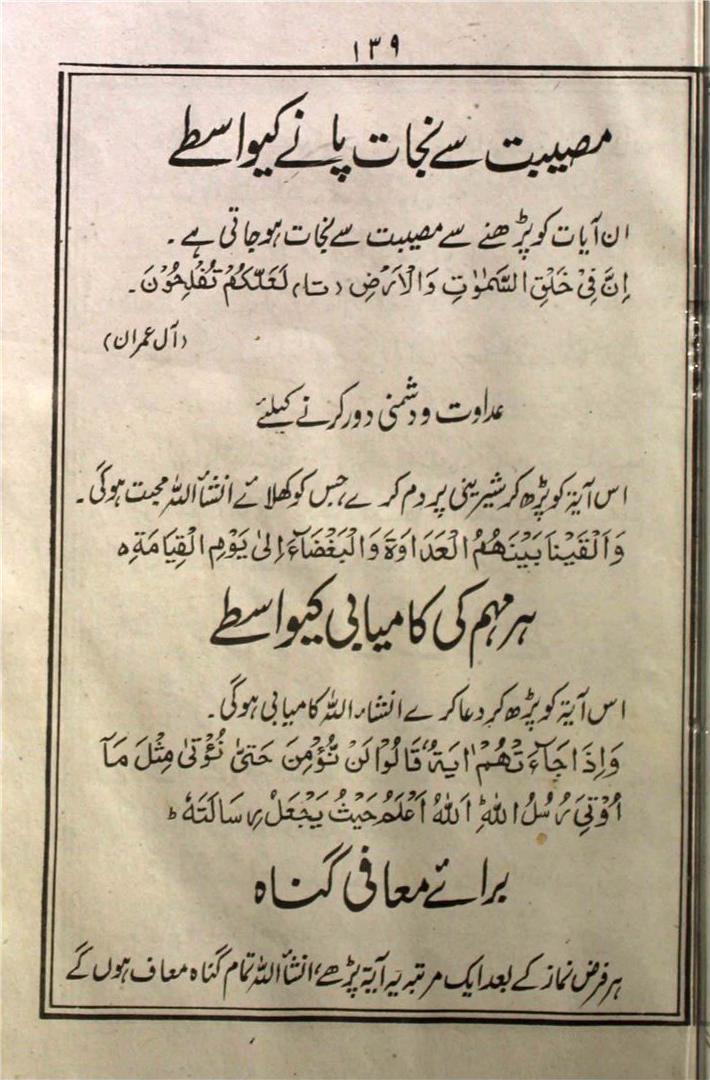 ۱۳۹
مصیبت سے نجات پانے کیواسطے
ان آیات کو پڑھنے سے مصیبت سے نجات ہو جاتی ہے۔
اِنَّ فِیْ خَلْقِ السَّمٰوٰتِ وَالْاَرْضِ (تا) لَعَلَّكُمْ تُفْلِحُوْنَ۔
(آل عمران)
عداوت و دشمنی دور کرنے کیلئے
اس آیۃ کو پڑھ کر شیرینی پر دم کرے، جس کو کھلائے انشأ اللہ محبت ہوگی۔
وَاَلْقَيْنَا بَيْنَهُمُ الْعَدَاوَةَ وَالْبَغْضَآءَ اِلٰى يَوْمِ الْقِيَامَةِ ہ
ہر مہم کی کامیابی کیواسطے
اس آیۃ کو پڑھ کر دعا کرے انشاء اللہ کامیابی ہوگی۔
وَاِذَا جَآءَتْهُمْ اٰيَةٌ قَالُوْا لَنْ نُّؤْمِنَ حَتّٰى نُؤْتٰى مِثْلَ مَآ
اُوْتِیَ رُسُلُ اللّٰهِ ؕ اَللّٰهُ اَعْلَمُ حَيْثُ يَجْعَلُ رِسَالَتَهٗ ؕ
برائے معافی گناہ
ہر فرض نماز کے بعد ایک مرتبہ یہ آیۃ پڑھے، انشأ اللہ تمام گناہ معاف ہوں گے